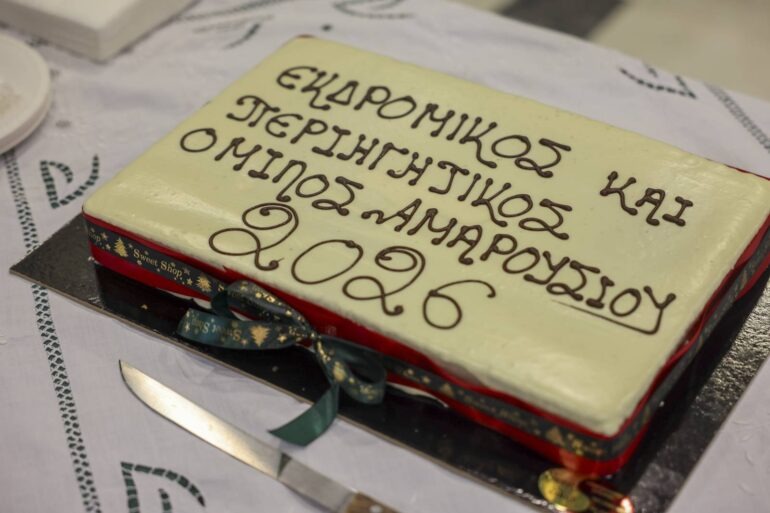 ΕΚΔΡΟΜΙΚΟΣ ΚΑΙ
ΠΕΡΙΗΓΗΤΙΚΟΣ
ΟΜΙΛΟΣ ΑΜΑΡΟΥΣΙΟΥ
2026
Sweet Shop